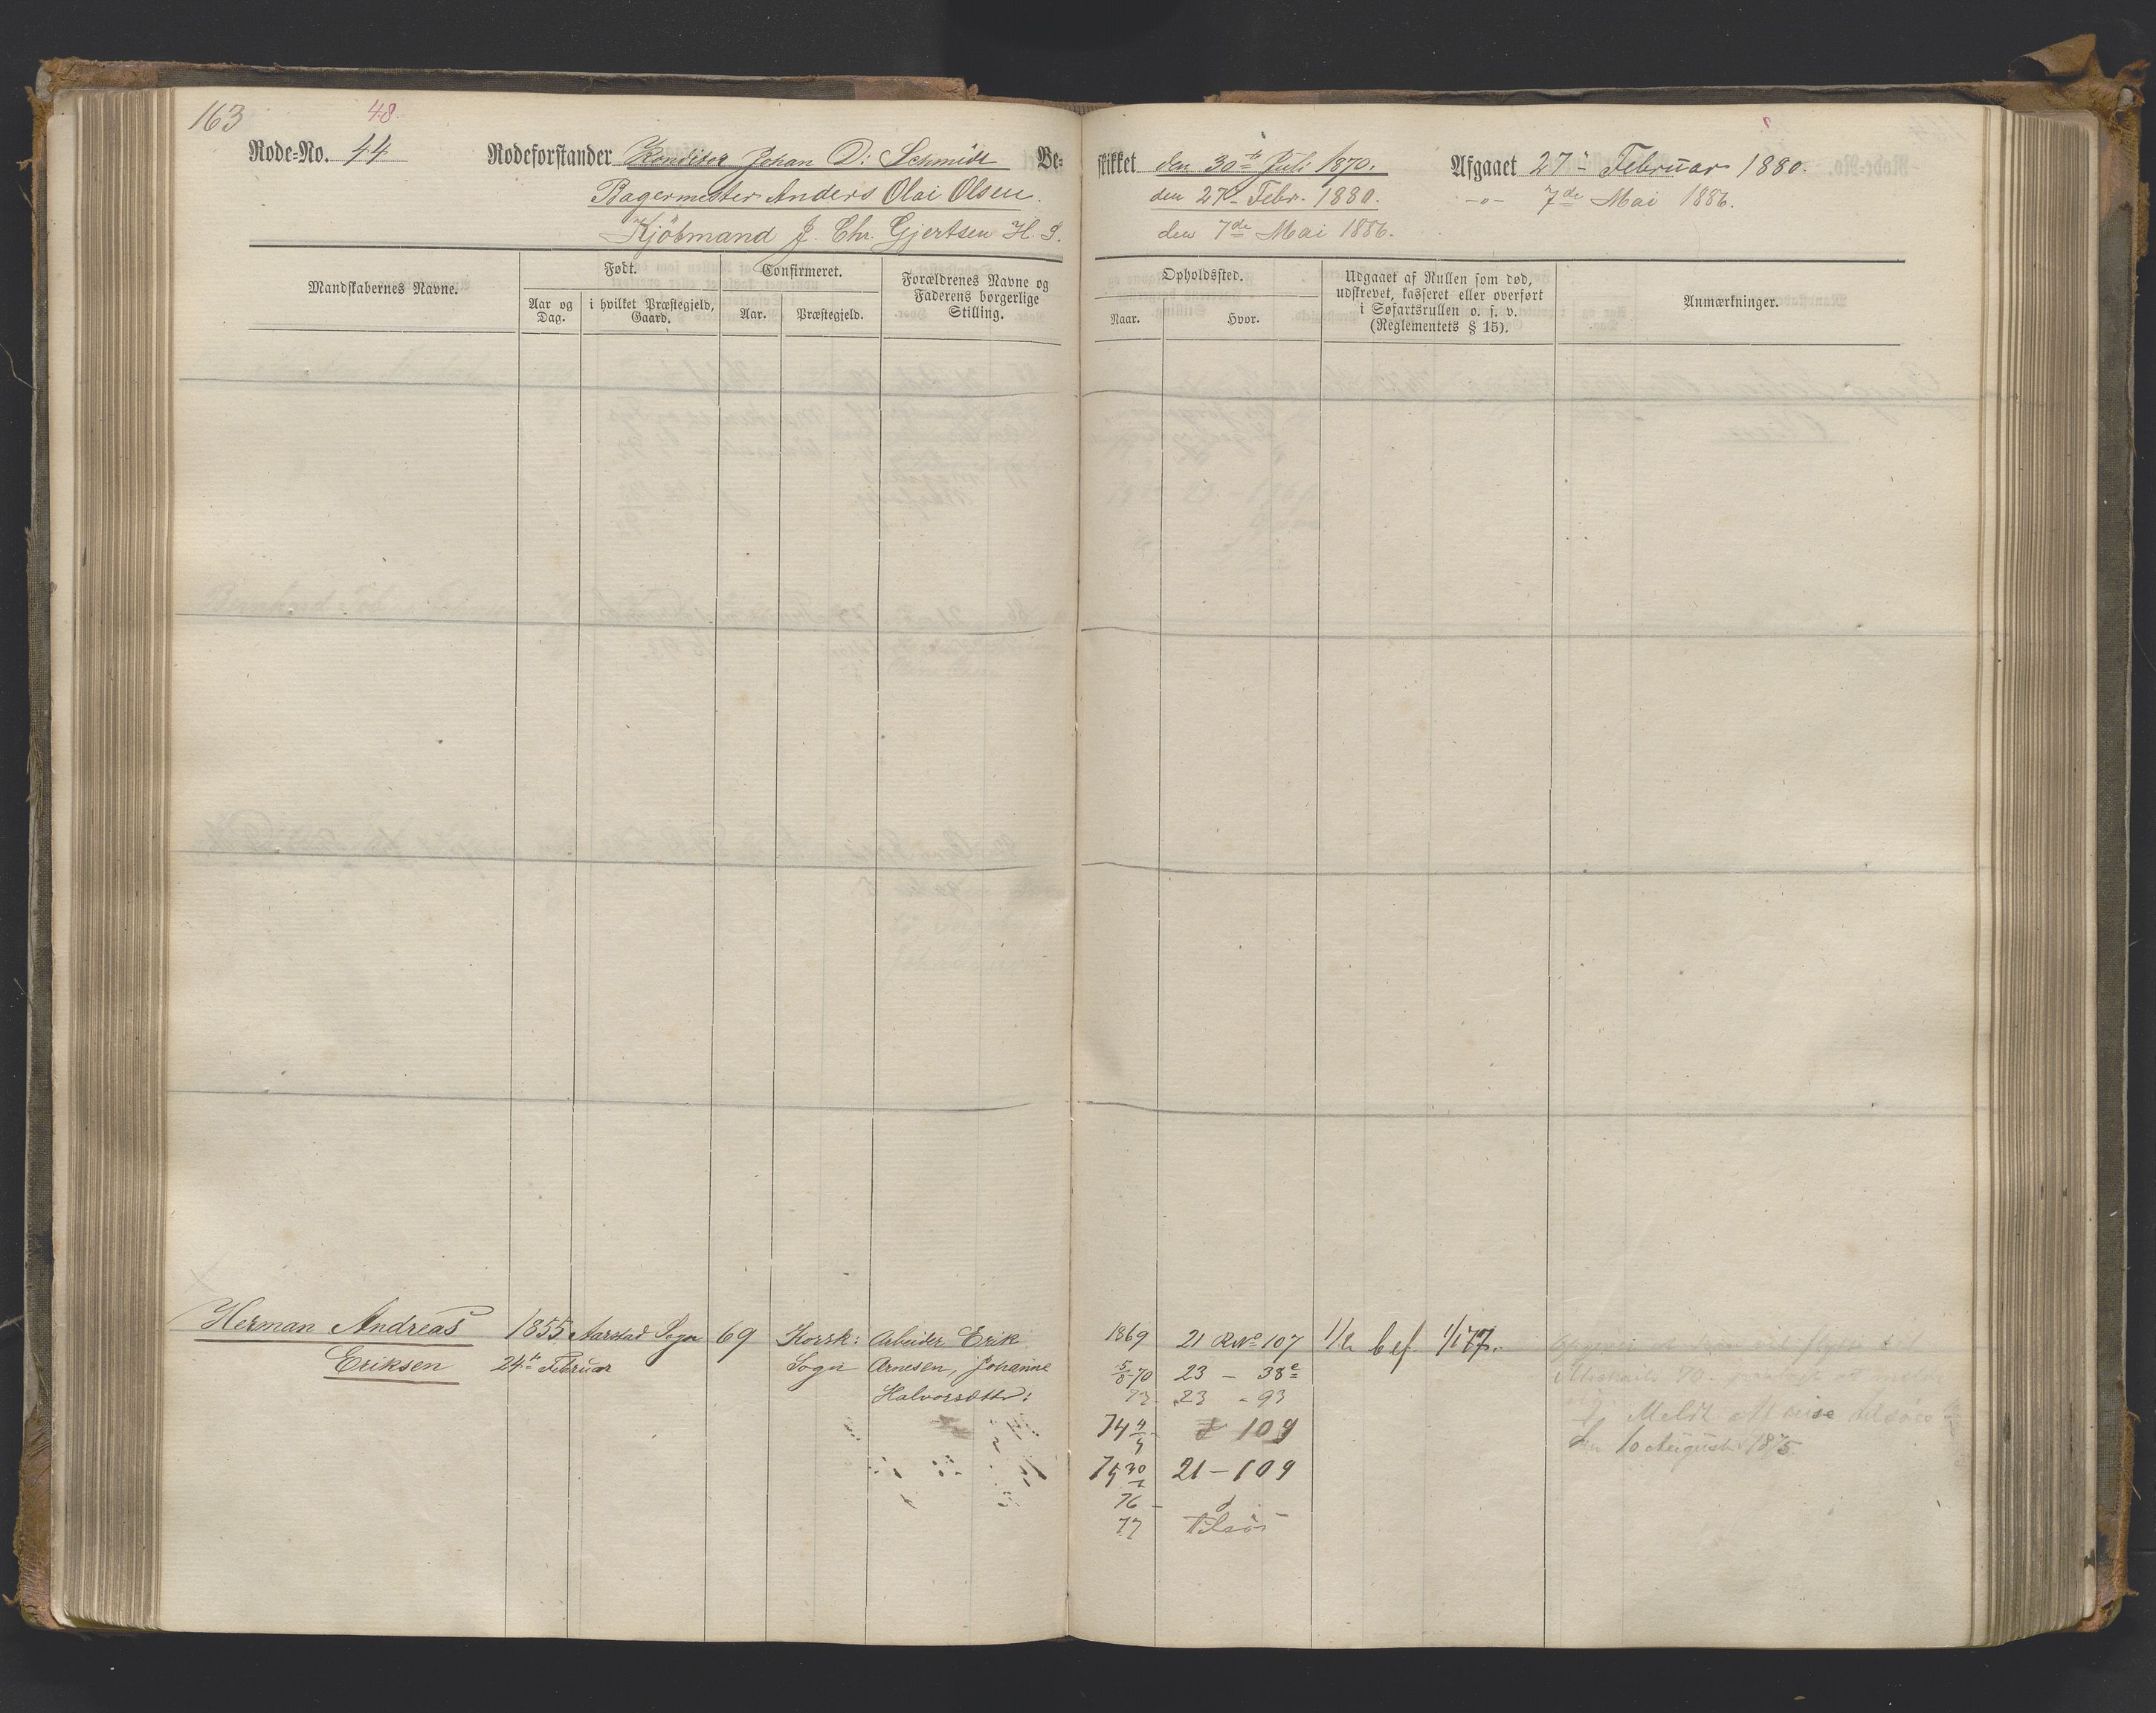 163
48.
Rode=No. 44 Rodeforstander Konditor Johan D: Schmidt Be=
Bagermester Anders Olai Olsen.
Kjöbmand J. Chr. Gjertsen H. S.
skikket den 30te Juli 1870. Afgaaet 27- Februar 1880.
den 27- Febr. 1880. -"- 7de Mai 1886.
den 7de Mai 1886.
Mandskabernes Navne.
Født.
Aar og Dag.
i hvilket Præstegjeld, Gaard.
Confirmeret.
Aar.
Præstegjeld.
Forældrenes Navne og
Faderens borgerlige
Stilling.
Opholdssted.
Naar.
Hvor.
Udgaaet af Rullen som død,
udskrevet, kasseret eller overført
i Søfartsrullen o. s. v.
(Reglementets § 15).
Anmærkninger.
Herman Andreas 1855 Aarstad Sogn 69 Korsk: Arbeider Erik
Eriksen 24de Februar Sogn Arnesen, Johanne
Halvorsdttr:
1869 21 RNo 107 bef. 1/1 77.
5/8 70 23 - 38e
73. 23 - 93
74 109
75 21 - 109
76 -
77 tilsös
Meldt att reise tilsöes
den 10 August 1875.